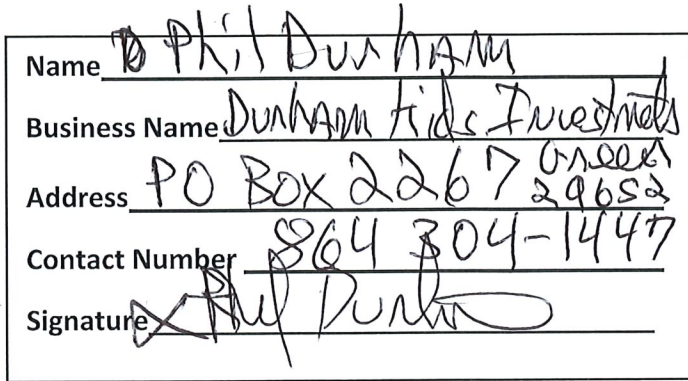 Name Phil Durham
Business Name Durham Kids Investmets
Address PO Box 2267 Greer
29652
Contact Number 864 304-1447
Signature Phil Durh